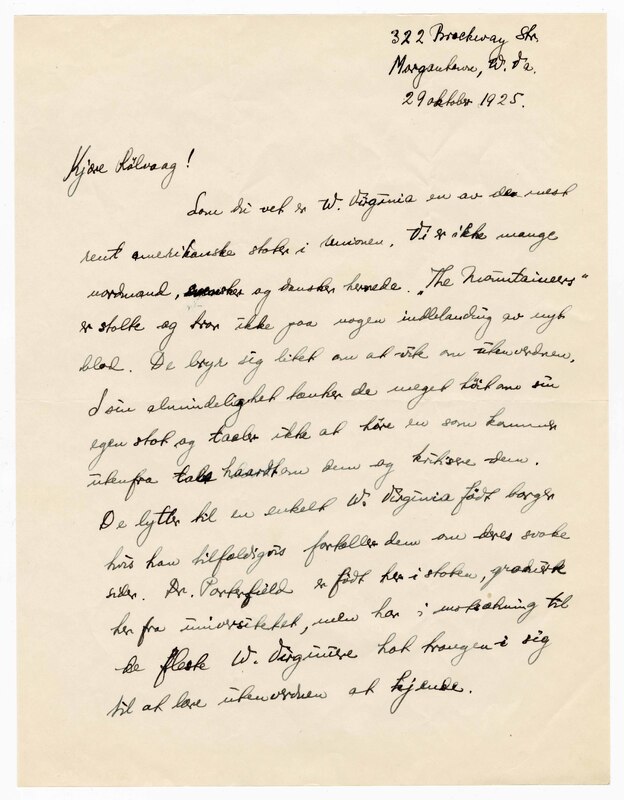 322 Brockway Str.
Morgantown, W. Va.
29 oktober 1925.
Kjære Rölvaag!
Som du vet er W. Virginia en av de mest
rent amerikanske stater i unionen. Vi er ikke mange
nordmænd, svensker og dansker hernede. "The Mountaineers"
er stolte og tror ikke paa nogen indblanding av nyt
blod. De bryr sig litet om at vite om utenverdnen.
I sin almindelighet tænker de meget höit om sin
egen stat og taaler ikke at höre en som kommer
utenfra tale haardt om dem og kritisere dem.
De lytter til en enkelt W. Virginia födt borger
hvis han tilfældigvis fortæller dem om deres svake
sider. Dr. Porterfield er födt her i staten, graduert
her fra universitetet, men har i motsætning til
de fleste W. Virginiere hat trangen i sig
til at lære utenverdnen at kjende.